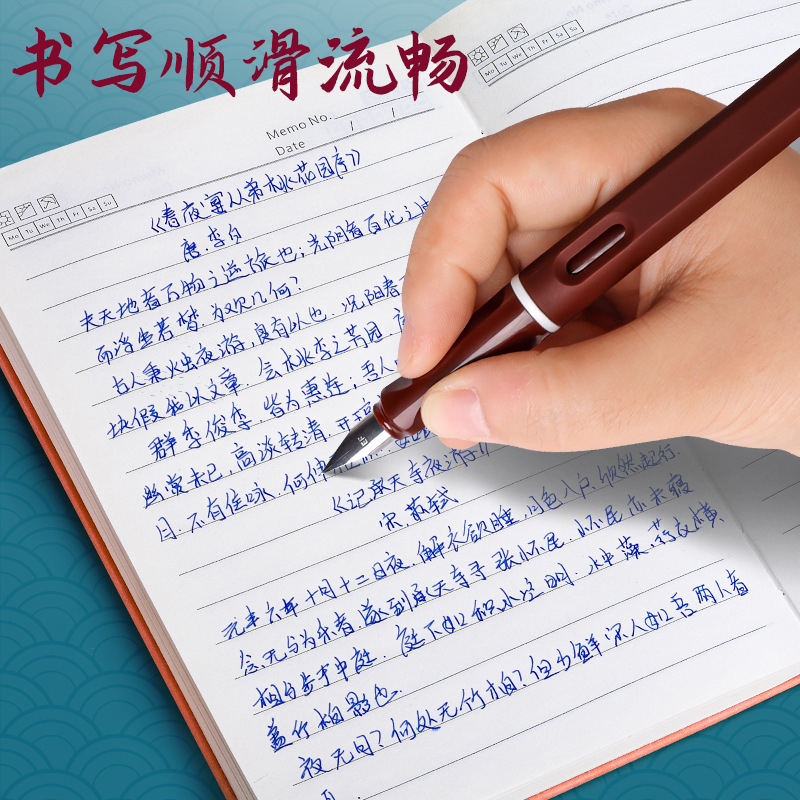 书写顺滑流畅
Memo No.
Date / /
Mo Tu We Th Fr Sa Su
Mo Tu We Th Fr Sa Su
《春夜宴从弟桃花园序》
唐·李白
夫天地者万物之逆旅也;光阴者百代之
而浮生若梦,为欢几何?
古人秉烛夜游,良有以也.况阳春
块假我以文章.会桃李之芳园,
群季俊秀,皆为惠连;吾人
幽赏未已,高谈转清,开
不有佳咏,何伸
《记承天寺夜游》
宋 苏轼
元丰六年十月十二日夜.解衣欲睡.月色入户.欣然起行.
念无与为乐者.遂到承天寺寻张怀民.怀民亦未寝
相与步于中庭.庭下如积水空明.水中藻、荇交横
盖竹柏影也.
夜无月?何处无竹柏?但少闲人如吾两人者